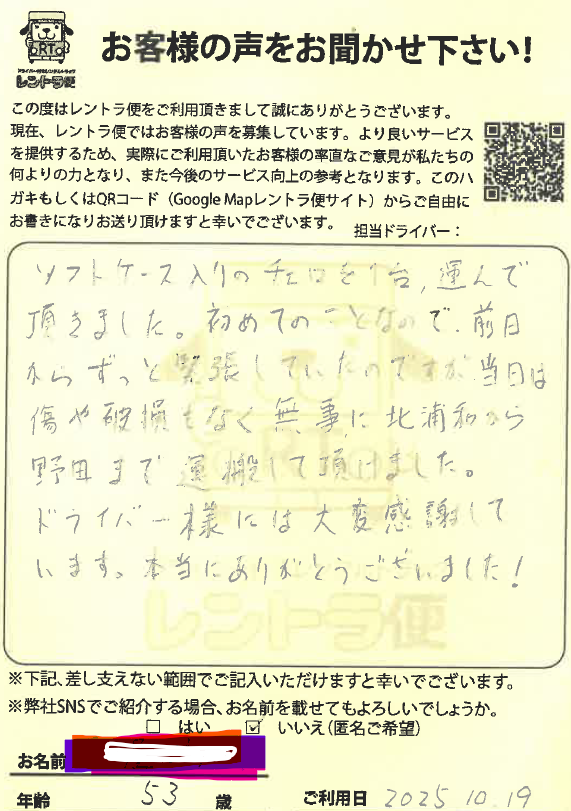 お客様の声をお聞かせ下さい!
RT
ドライバー付きレンタルトラック
レントラ便
この度はレントラ便をご利用頂きまして誠にありがとうございます。
現在、レントラ便ではお客様の声を募集しています。より良いサービス
を提供するため、実際にご利用頂いたお客様の率直なご意見が私たちの
何よりの力となり、また今後のサービス向上の参考となります。このハ
ガキもしくはQRコード（Google Mapレントラ便サイト）からご自由に
お書きになりお送り頂けますと幸いでございます。
担当ドライバー：
ソフトケース入りのチェロを1台,運んで
頂きました。初めてのことなので、前日
からずっと緊張していたのですが、当日は
傷や破損もなく無事に北浦和から
野田まで運搬して頂けました。
ドライバー様には大変感謝して
います。本当にありがとうございました!
レントラ便
※下記、差し支えない範囲でご記入いただけますと幸いでございます。
※弊社SNSでご紹介する場合、お名前を載せてもよろしいでしょうか。
□ はい ☑ いいえ(匿名ご希望)
お名前
年齢 53 歳 ご利用日 2025 10.19